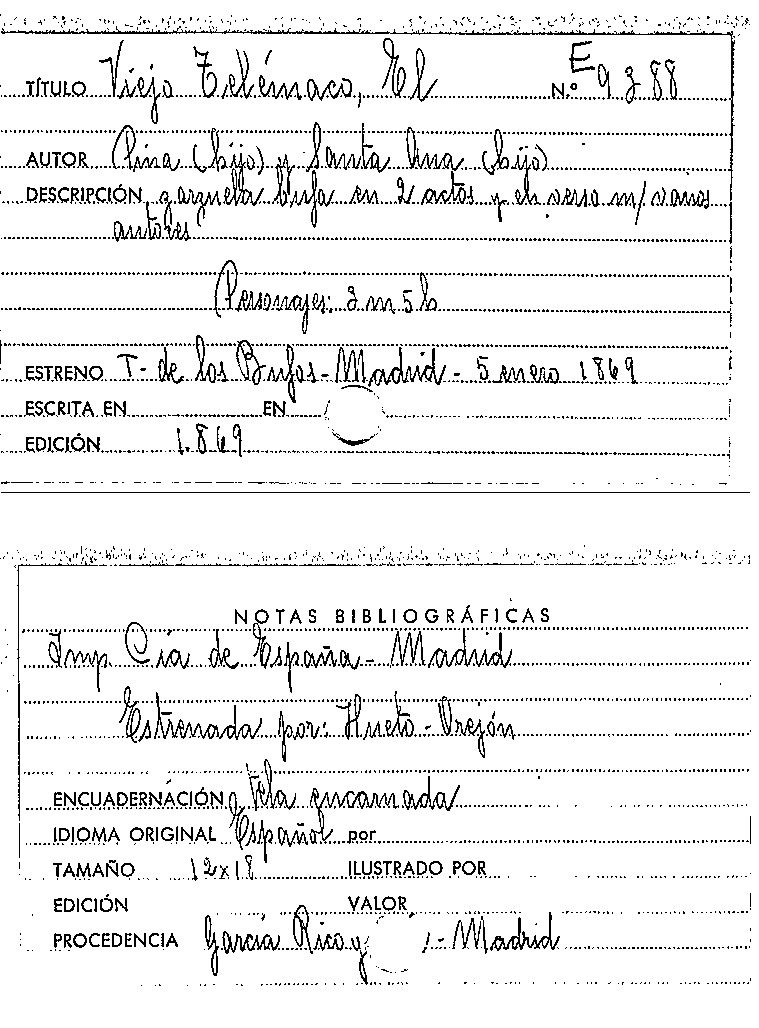 TÍTULO Viejo Telémaco, El N.º E 9388
AUTOR Pina (hijo) y Santa Ana (hijo)
DESCRIPCIÓN zarzuela bufa en 2 actos y en verso m/ varios
autores
Personajes: 3 m 5 h
ESTRENO T- de los Bufos - Madrid - 5 enero 1869
ESCRITA EN EN
EDICIÓN 1.869
NOTAS BIBLIOGRÁFICAS
Imp Cía de España - Madrid
Estrenada por: Hueto - Orejón
ENCUADERNACIÓN Tela encarnada
IDIOMA ORIGINAL Español por
TAMAÑO 12x18 ILUSTRADO POR
EDICIÓN VALOR
PROCEDENCIA García Rico y - Madrid